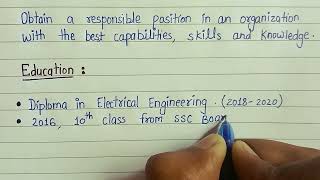 Obtain a responsible position in an organization
with the best capabilities, skills and knowledge.
Education :
• Diploma in Electrical Engineering. (2018-2020)
• 2016, 10th class from SSC Boar